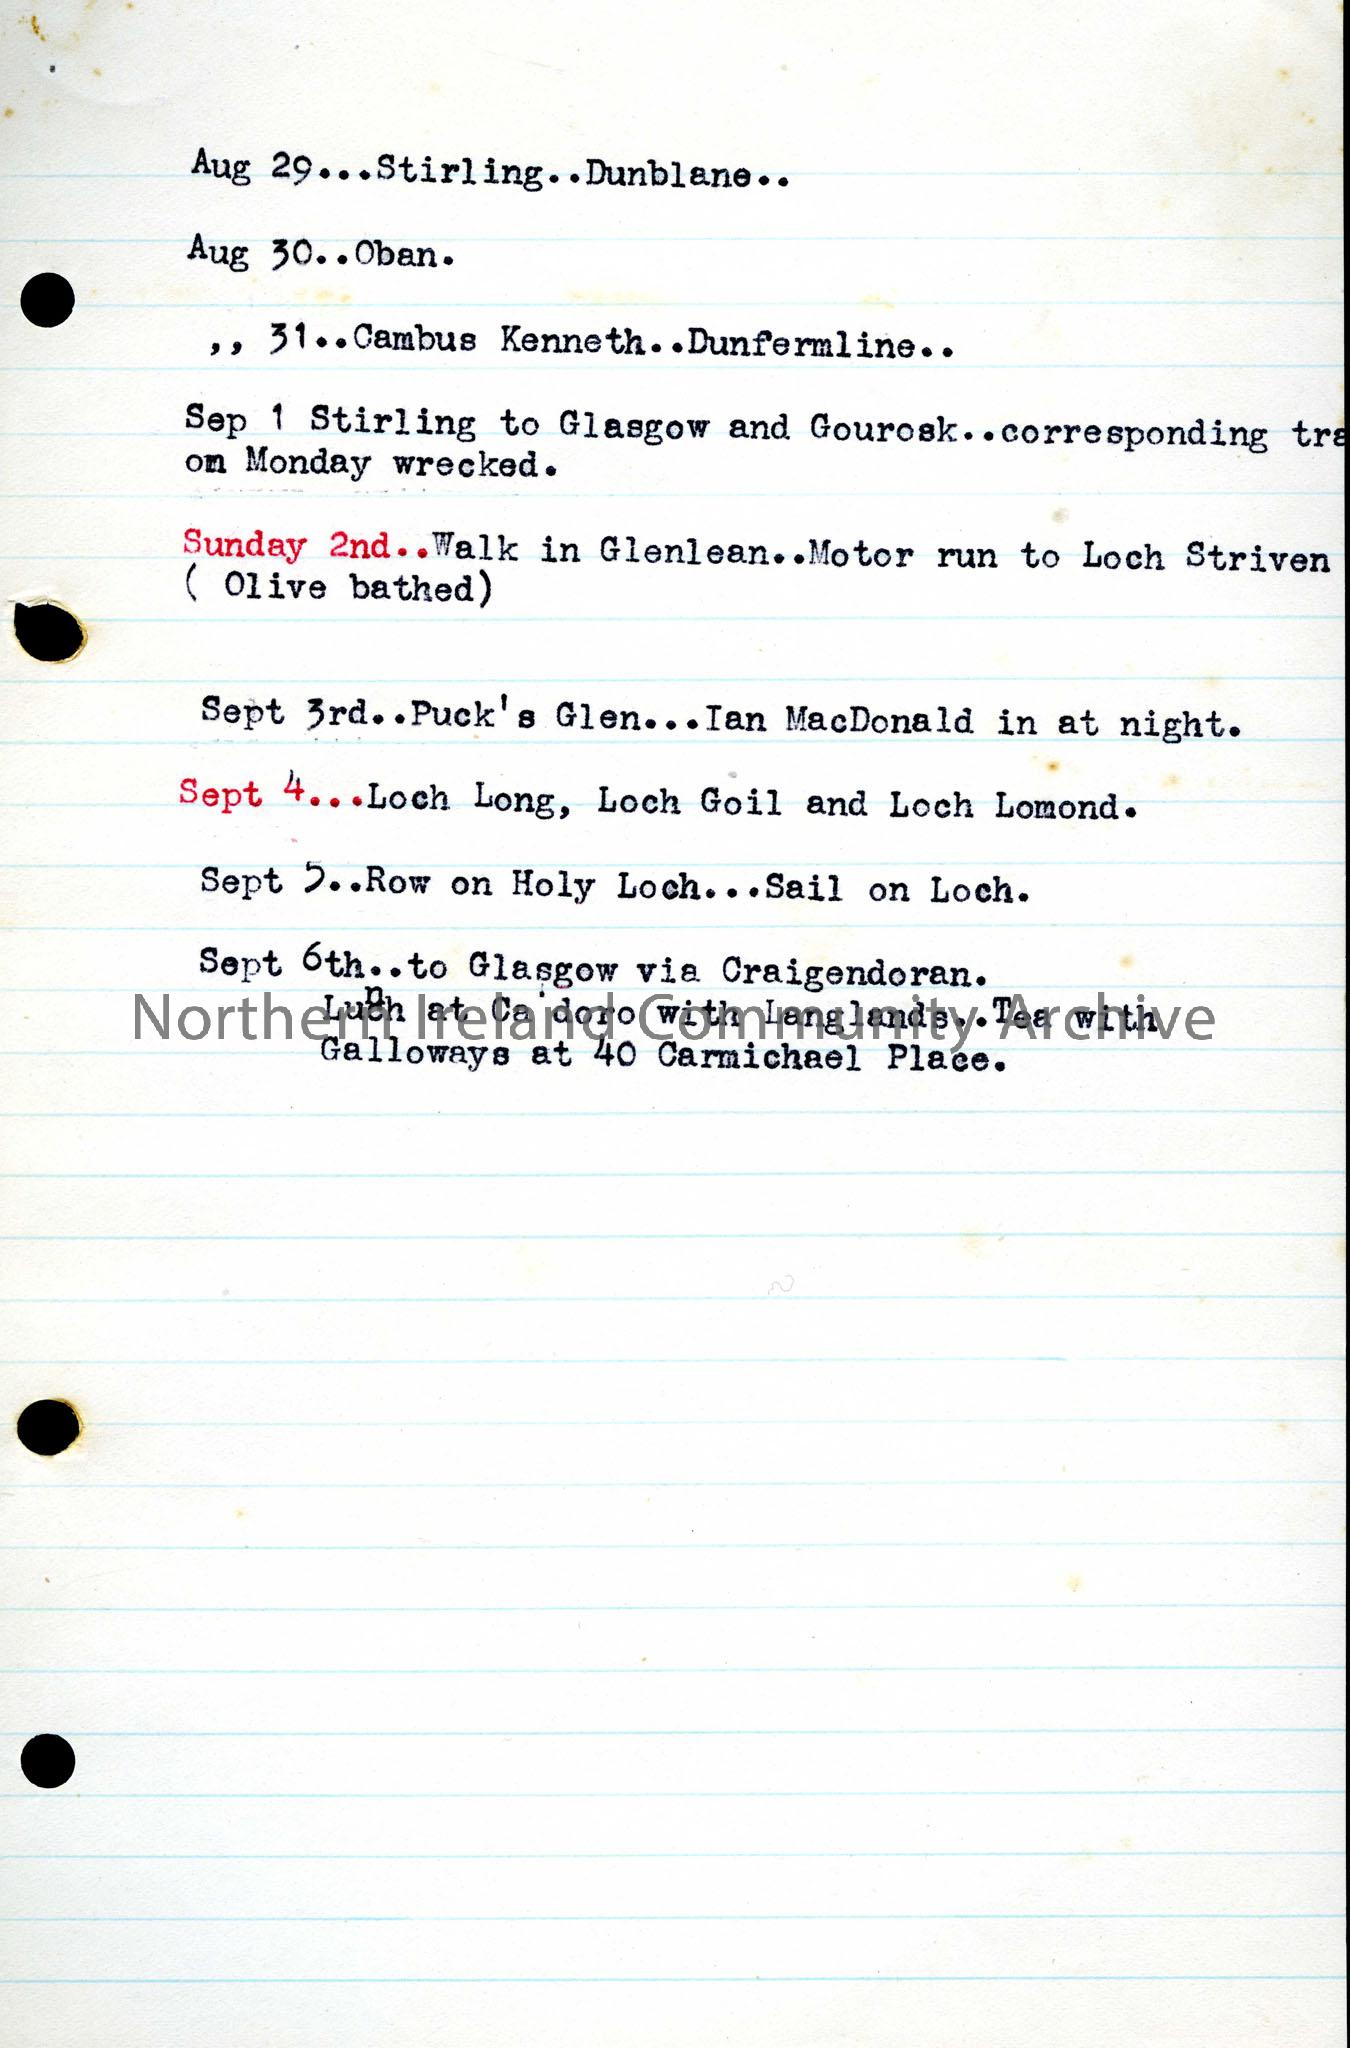 Aug 29...Stirling..Dunblane..
Aug 30..Oban.
,, 31..Cambus Kenneth..Dunfermline..
Sep 1 Stirling to Glasgow and Gourosk..corresponding tra
on Monday wrecked.
Sunday 2nd..Walk in Glenlean..Motor run to Loch Striven
( Olive bathed)
Sept 3rd..Puck's Glen...Ian MacDonald in at night.
Sept 4...Loch Long, Loch Goil and Loch Lomond.
Sept 5..Row on Holy Loch...Sail on Loch.
Sept 6th..to Glasgow via Craigendoran.
Lunch at Ca'doro with Langlands..Tea with
Northern Ireland Community Archive
Galloways at 40 Carmichael Place.